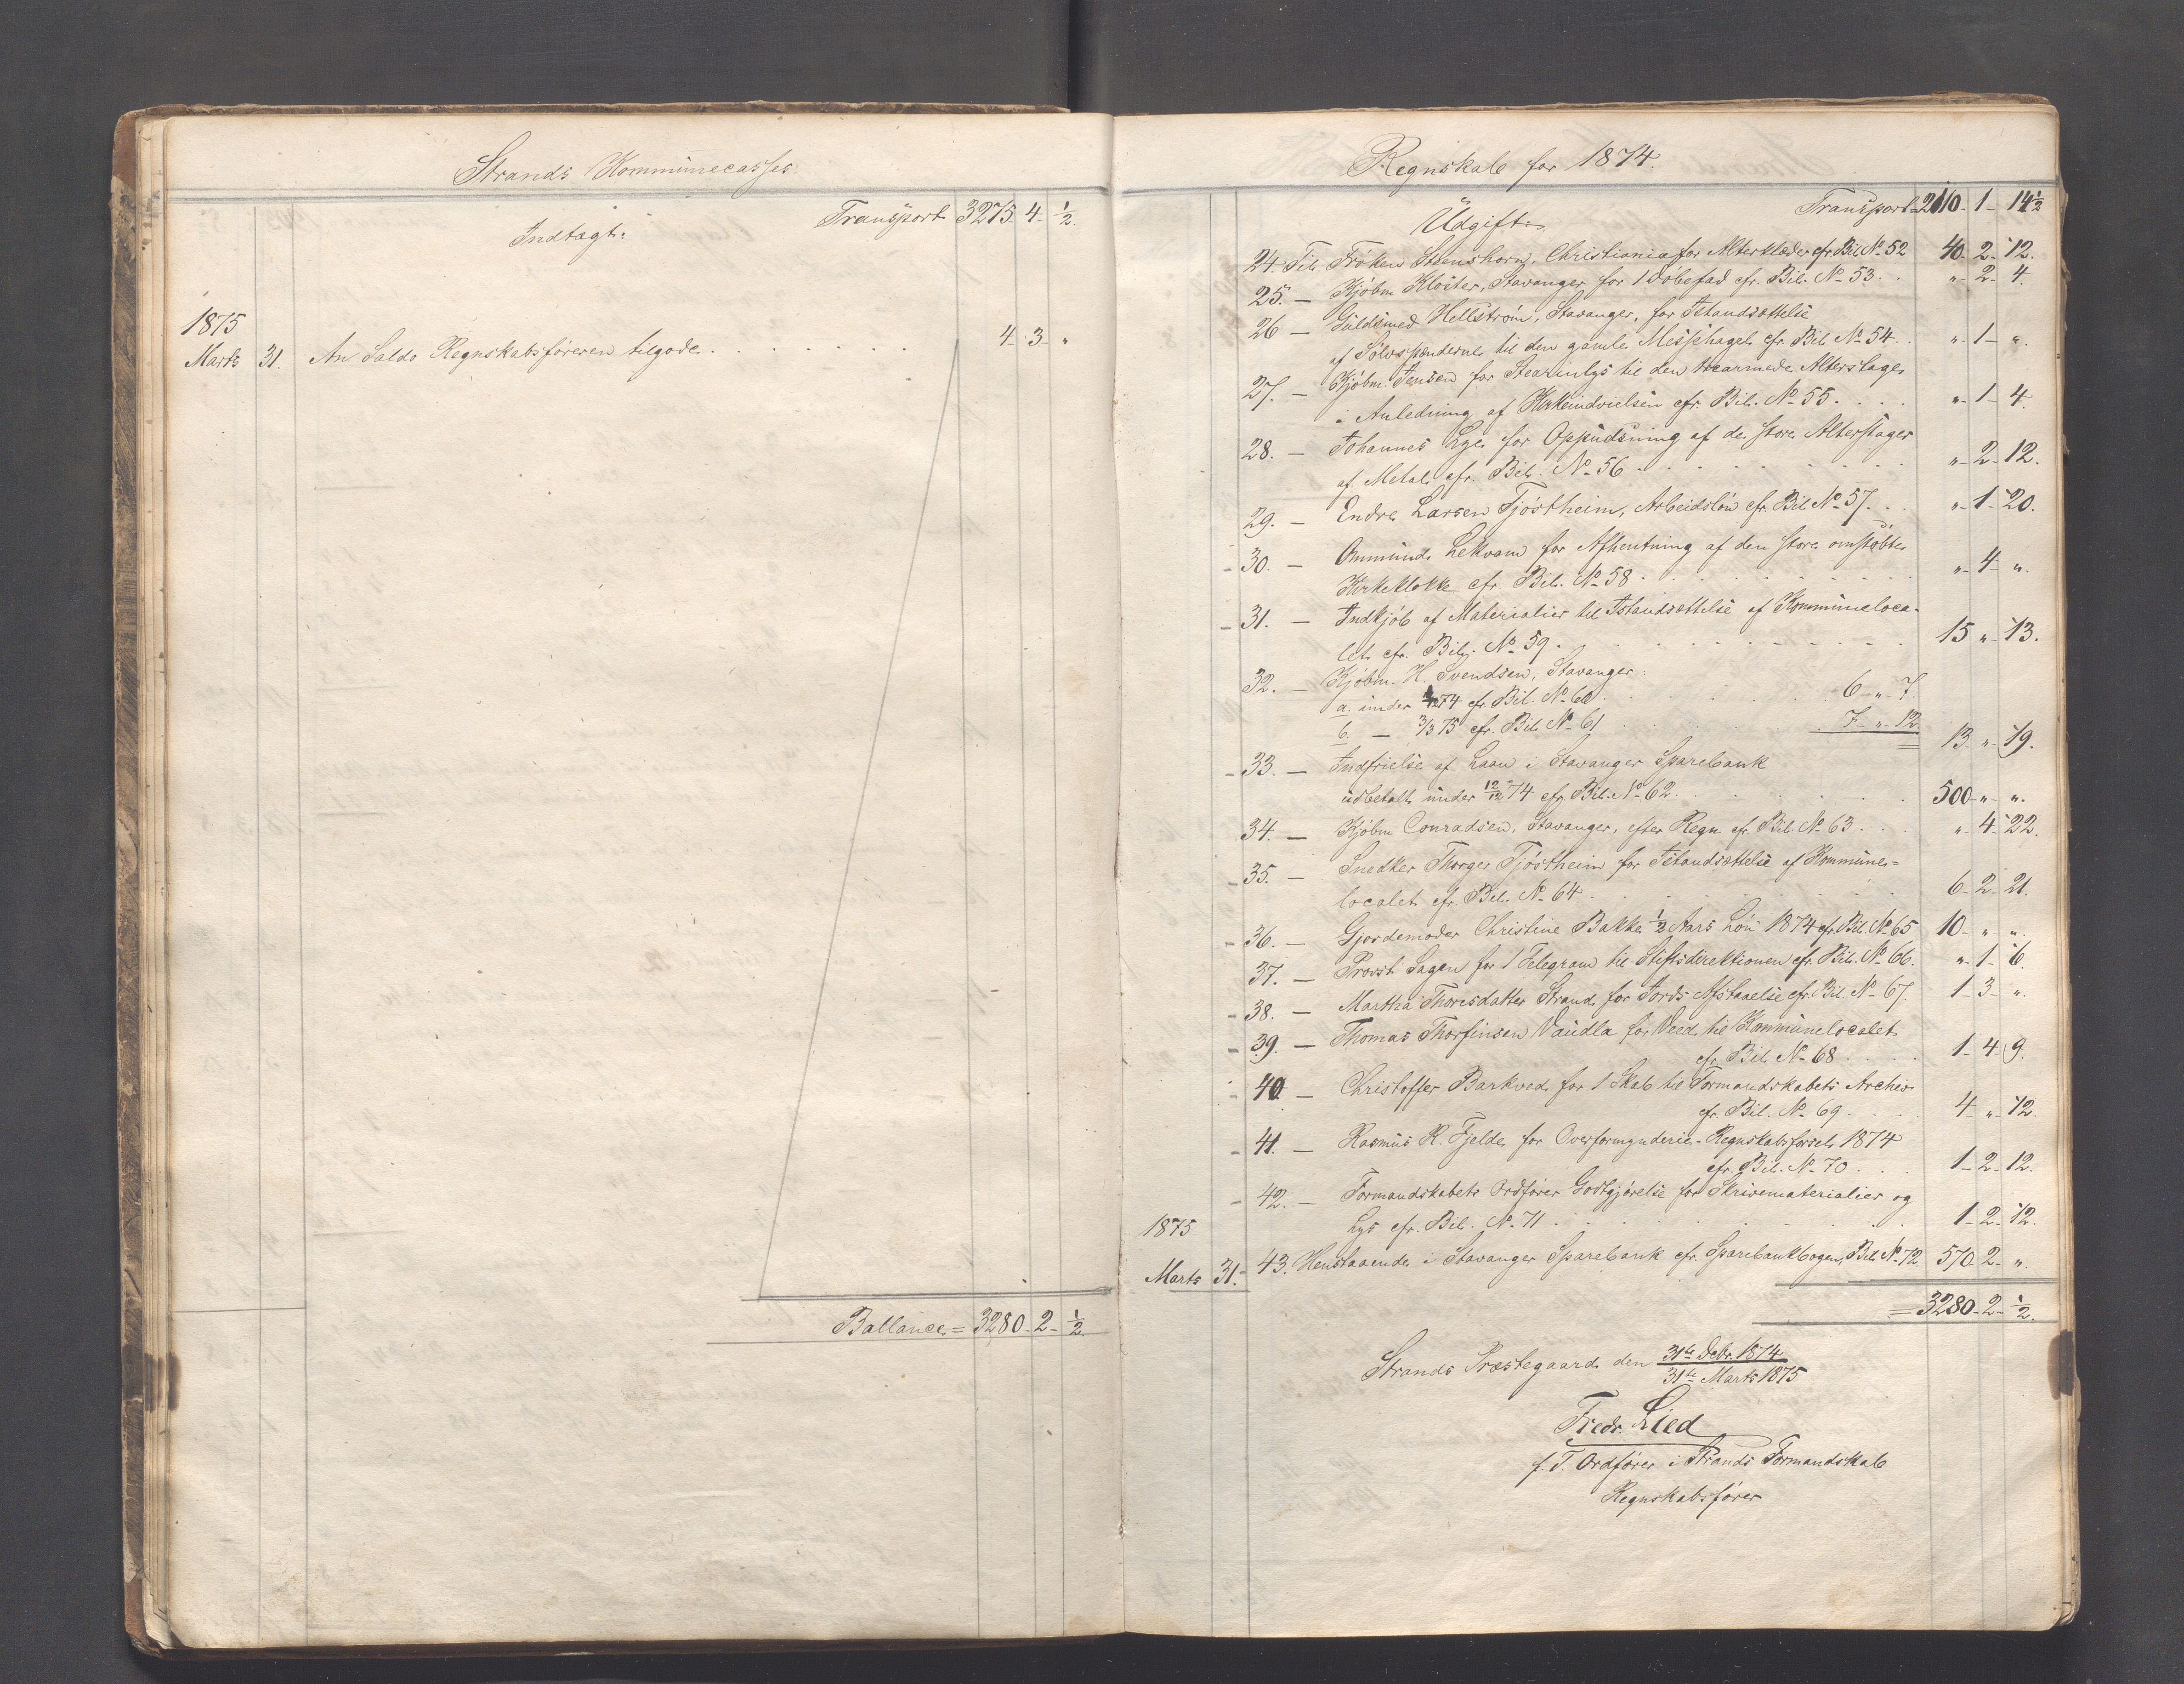 Strands Kommunecasses
Indtægt.
Transport 3275-4-½.
1875
Marts 31. An Saldo Regnskabsføreren tilgode. . . . . . . . . 4-3-"
Ballance = 3280-2-½.
Regnskab for 1874.
Udgift.
Transport 2110-1-14½
24. Til Frøken Steenshorn, Christiania for Alterklæder cfr. Bil. No 52 40-2-12.
25. — Kjøbm. Kloster, Stavanger for 1 Døbefad cfr. Bil. No 53. . "-2-4.
26 — Guldsmed Hellstrøm, Stavanger, for Istandsættelse
af Sølvspænderne til den gamle Messehagel cfr. Bil. No 54. . "-1-".
27. — Kjøbm. Jensen for Stearinlys til den trearmede Alterstage
i Anledning af Kirkeindvielsen cfr. Bil. No 55. . . . "-1-4.
28. — Johannes Lye for Oppudsning af de store Alterstager
af Metal cfr. Bil. No 56 . . . . . . . . "-2-12.
29. — Endre Larsen Tjøstheim, Arbeidsløn cfr. Bil. No 57. . . "-1-20.
30. — Ommund Lekvam for Afhentning af den store omstøbte
Kirkeklokke cfr. Bil. No 58 . . . . . . . . "-4-".
31. — Indkjøb af Materialier til Istandsættelse af Kommuneloca-
let cfr. Bil. No 59. . . . . . . . . 15-"-13.
32. — Kjøbm. H. Svendsen, Stavanger.
a. under 74 cfr. Bil. No 60 . . . . . . 6-"-7.
b. — 3/3 75 cfr. Bil. No 61 . . . . . . 7-"-12. 13-"-19.
33. — Indfrielse af Laan i Stavanger Sparebank
udbetalt under 12/12 74 cfr. Bil. No 62. . . . . . . 500-"-".
34. — Kjøbm. Conradsen, Stavanger, efter Regn. cfr. Bil. No 63 . . . "-4-22.
35. — Snedker Thorger Tjøstheim for Istandsættelse af Kommune=
localet cfr. Bil. No 64 . . . . . . . . 6-2-21.
36. — Gjordemoder Christine Bakke ½ Aars Løn 1874 cfr. Bil. No 65 10-"-".
37. — Provst Sagen for 1 Telegram til Stiftsdirektionen cfr. Bil. No 66. "-1-6.
38. — Martha Thoresdatter Strand for Jords Afstaaelse cfr. Bil. No 67. 1-3-".
39. — Thomas Thorfinsen Vaudla for Veed til Kommunelocalet
cfr. Bil. No 68 . . . . 1-4-9.
40 — Christoffer Barkved for 1 Skab til Formandskabets Archiv
cfr. Bil. No 69. . . . 4-"-12.
41. — Rasmus R. Fjelde for Overformynderie-Regnskabsførsel 1874
cfr. Bil. No 70 . . . 1-2-12.
42. — Formandskabets Ordfører Godtgjørelse for Skrivematerialier og
Lys cfr. Bil. No 71 . . . . . . . . 1-2-12.
1875
Marts 31. 43. Henstaaende i Stavanger Sparebank cfr. Sparebankbogen, Bil. No 72 570-2-".
= 3280-2-½.
Strands Præstegaard den 31te Decbr. 1874
31te Marts 1875
Fredr. Lied
f. T. Ordfører i Strands Formandskab
Regnskabsfører